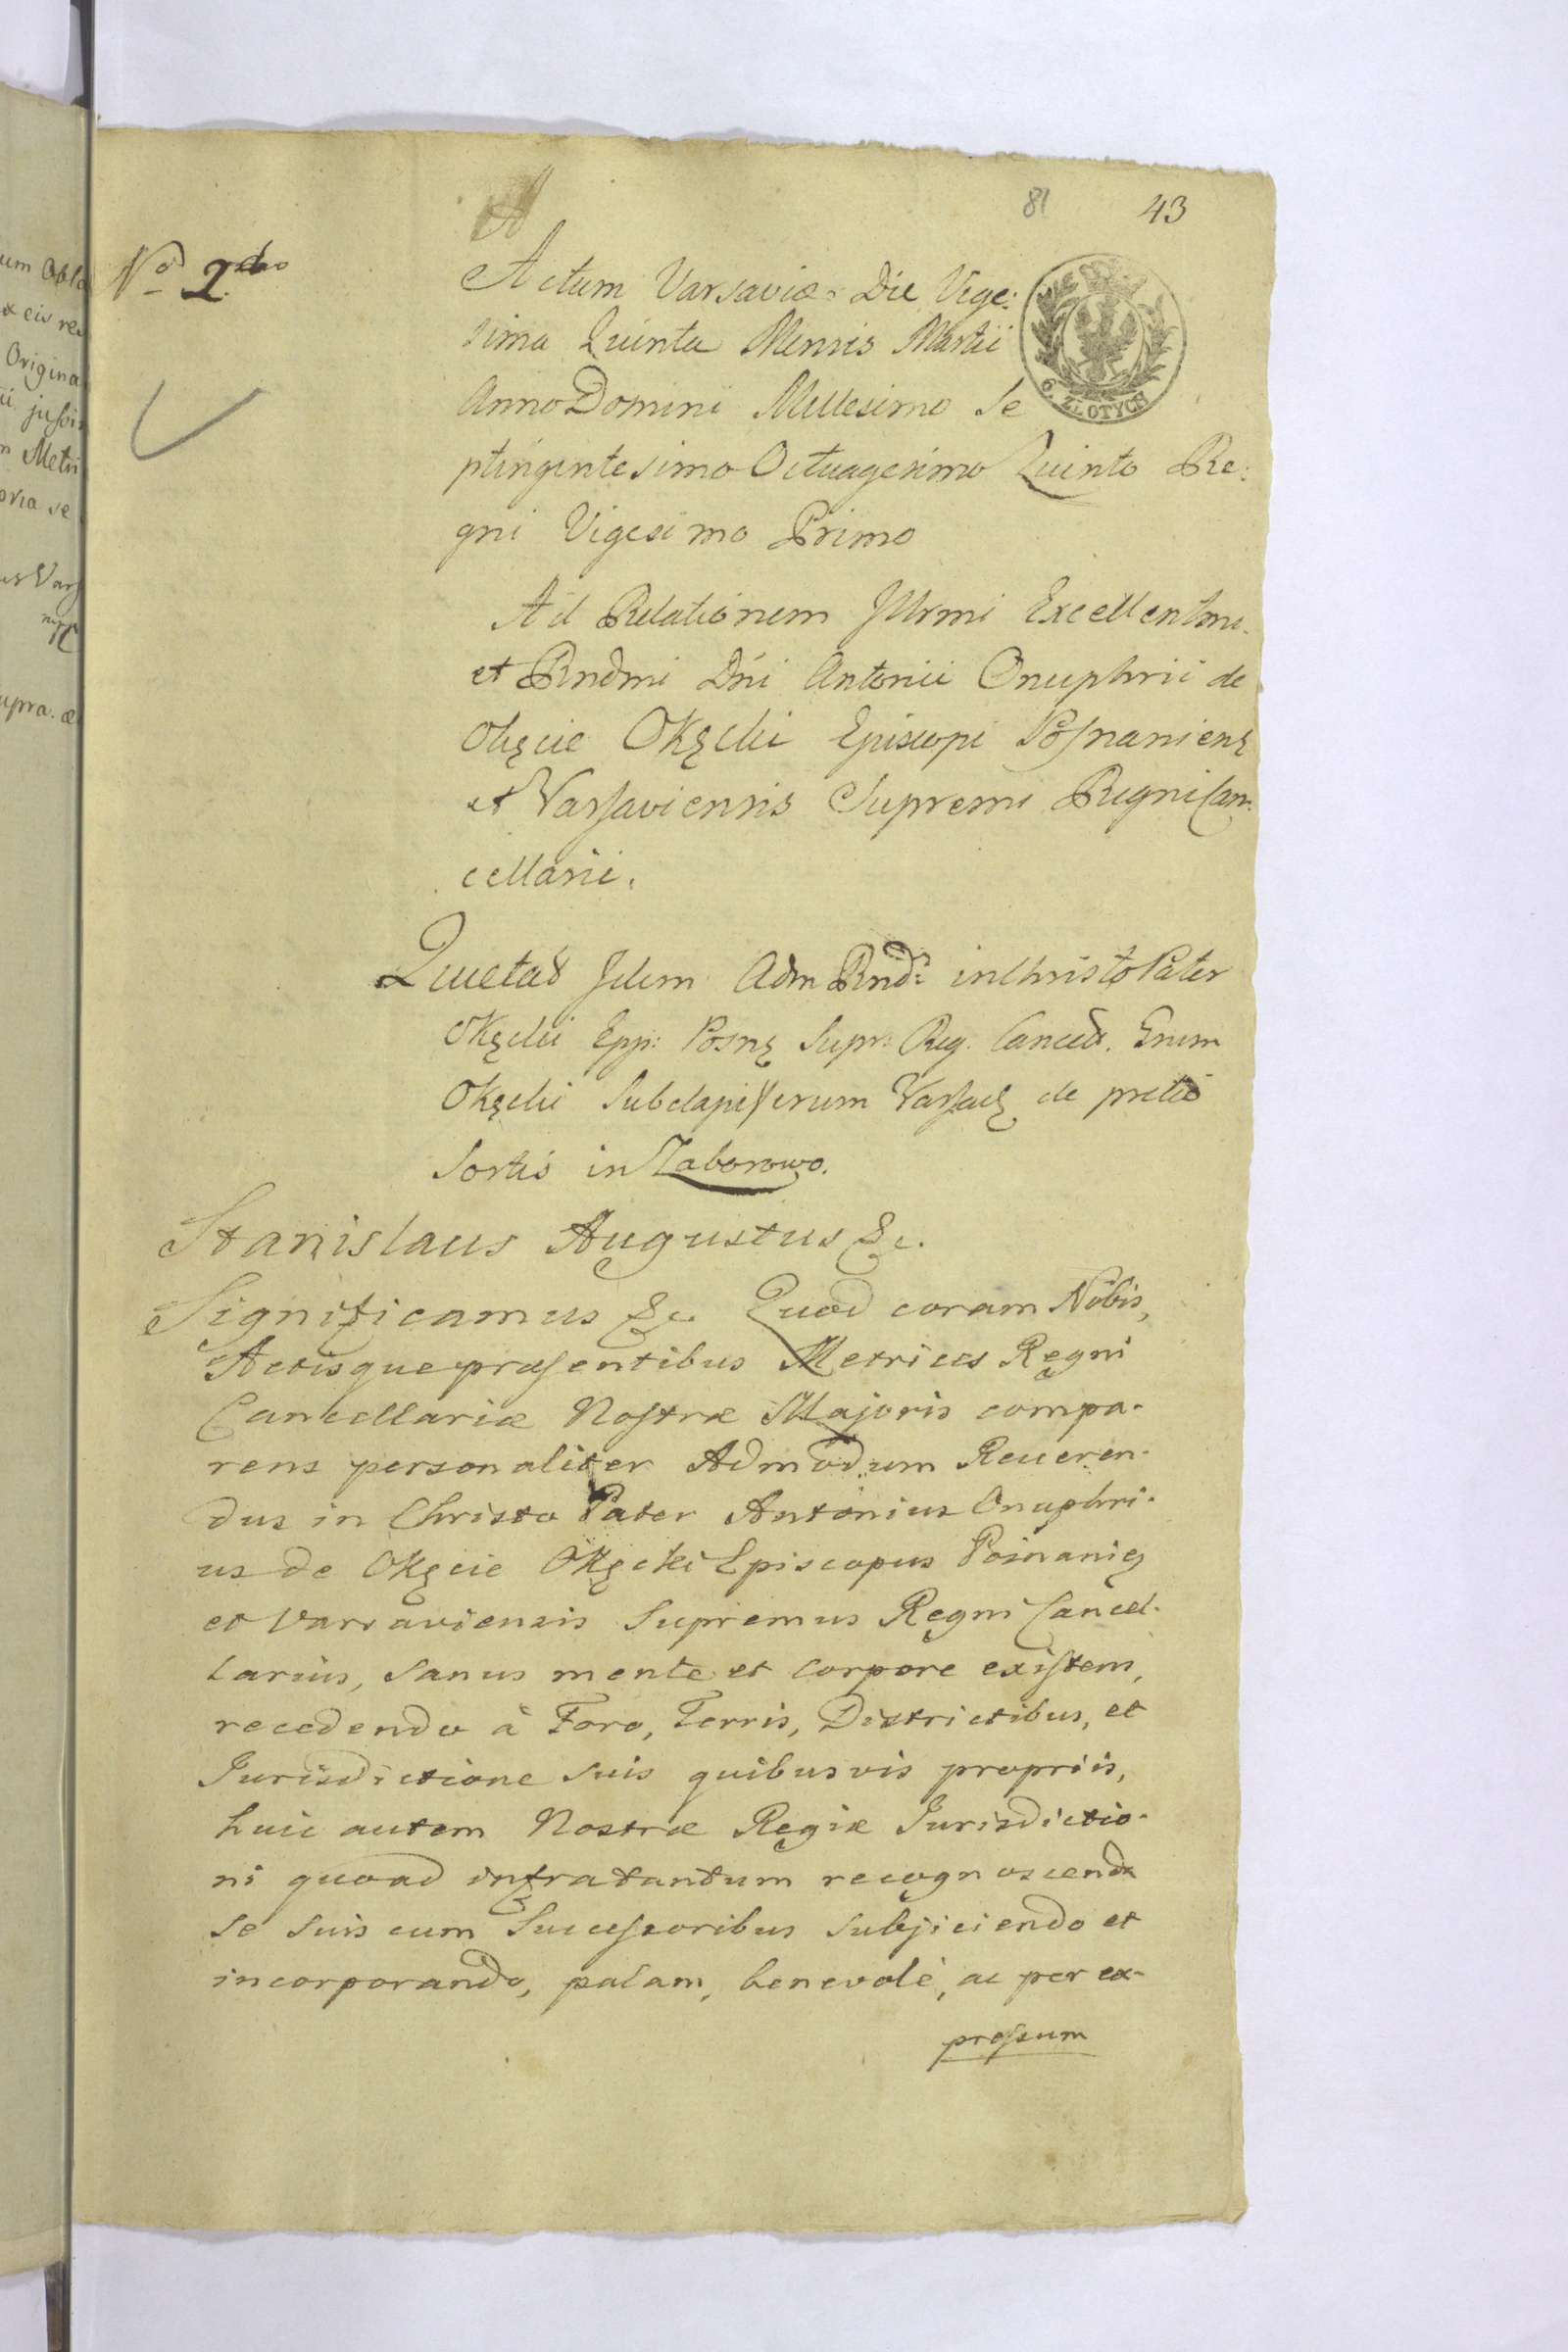 81 43
No 2do
Actum Varsaviæ Die Vige:
sima Quinta Mensis Martii
Anno Domini Millesimo Se
ptingentesimo Octuagesimo Quinto Re:
gni Vigesimo Primo
6. ZŁOTYCH
Ad Relationem Illrmi Excellentmi
et Rndmi Dni Antonii Onuphrii de
Okęcie Okęcki Episcopi Posnaniens
et Varsaviensis Supremi Regni Can:
cellarii.
Quietat Idem Adm Rnd: in Christo Pater
Okęcki Epp: Posn Supr: Reg. Cancell. Gnum
Okęcki Subdapiferum Varsav de pretio
Sortis in Zaborowo.
Stanislaus Augustus &c.
Significamus &c. Quod coram Nobis,
Actisque præsentibus Metrices Regni
Cancellariæ Nostræ Majoris compa-
rens personaliter Admodum Reveren-
dus in Christo Pater Antonius Onuphri-
us de Okęcie Okęcki Episcopus Posnanis
et Varsaviensis Supremus Regni Cancel-
larius, sanus mente et corpore existens,
recedendo à Foro, Terris, Districtibus, et
Jurisdictione suis quibusvis propriis,
huic autem Nostræ Regiæ Jurisdictio-
ni quoad infratantum recognoscenda
se suis cum Successoribus subjiciendo et
incorporando, palam, benevolè, ac per ex-
pressum
um Obla
ex eis re
Origina
Metri
oria se
supra. æ